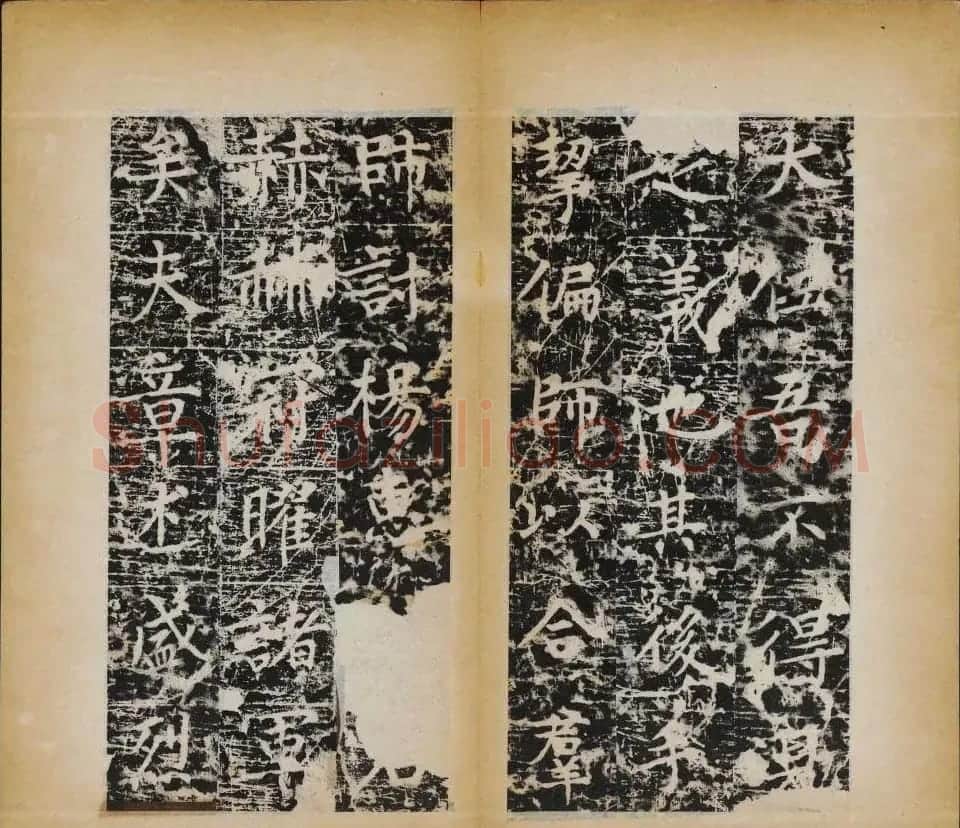 大吾不得
之義也其後年
挈偏師以合羣
師討楊惠
赫赫曜諸軍
矣夫章述盛烈
Shufaziliao.COM